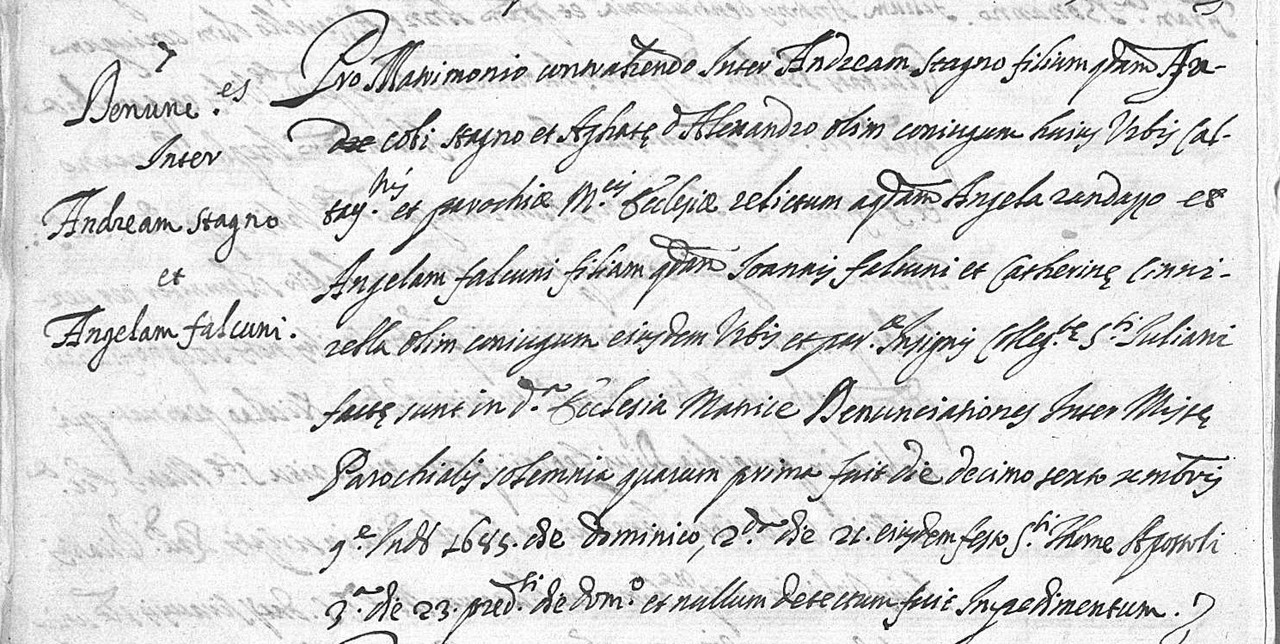 7
Denunc.es
Inter
Andream Stagno
et
Angelam falcuni.
Pro Matrimonio contrahendo Inter Andream Stagno filium qdam Ja-
cobi Stagno et Aghatę d Alexandro olim coniugum huius Urbis Cal-
tag.nis et parochiæ M.cis Ecclesiæ relictum a qdam Angela randazzo et
Angelam falcuni filiam qdam Joannis falcuni et Catherinę Cinni-
rella olim coniugum eiusdem Urbis et par.æ Insignis Colleg.tę S.ti Iuliani
factę sunt in d.a Ecclesia Matrice Denunciationes Inter Missę
Parochialis solemnia quarum prima fuit die decimo sexto xmbris
9.e Ind. 1685. die dominico, 2.da die 21. eiusdem festo S.ti Thome Apostoli
3.a die 23. pred.ti die dom.o et nullum detectum fuit Impedimentum.